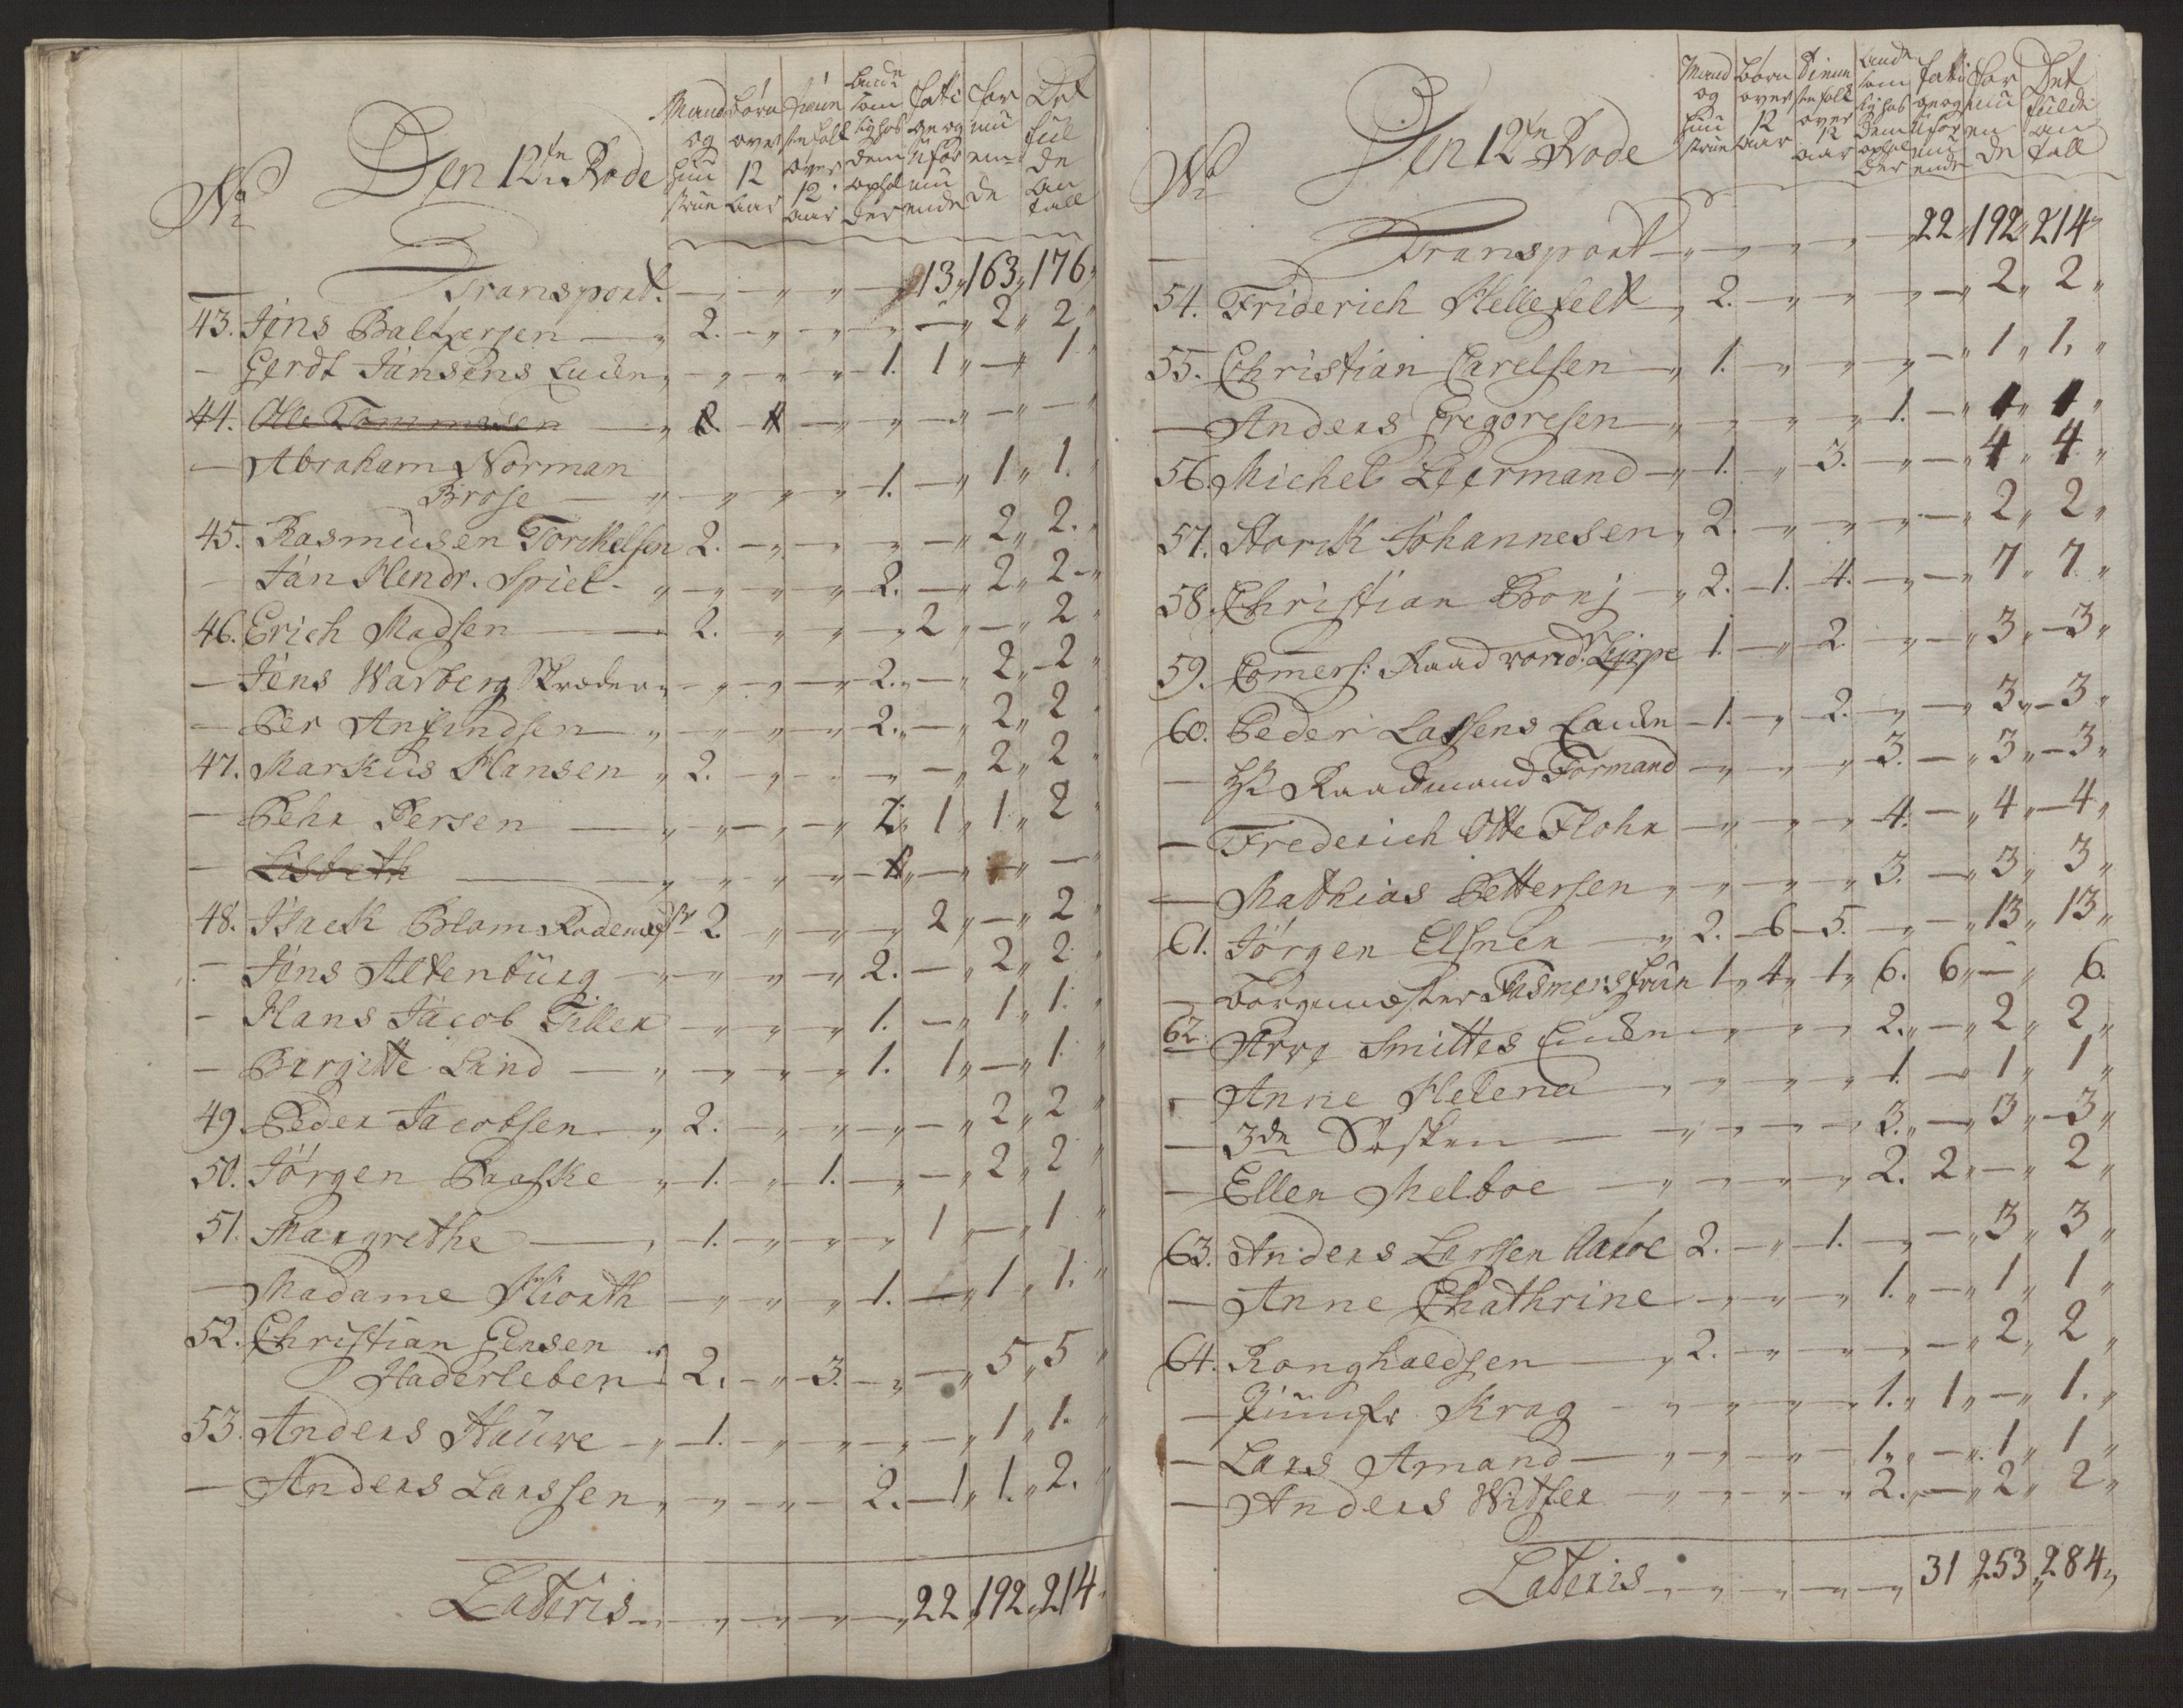 No
Den 12te Rode
Mand og Huu strue
børn over 12 Aar
tienn stefolk over 12 Aar
Ande som sig hos dem opholder
fati ge og Ufor mu ende
for mu en de
Det ful de an tall
Transport. 13 163 176
43. Jens Baltzersen 2. 2 2
— Gerdt Jansens Enke 1. 1 — 1
44. Olle Tommesen
— Abraham Norman
Brose 1. — 1 1.
45. Rasmus en Torchelsen 2. — 2 2.
— Jan Hendr. Spiel 2. — 2 2
46. Erich Madsen 2. 2 — 2
— Jens Warberg Skræder 2. — 2 2
— Per Anfindsen 2. — 2 2
47. Markus Hansen 2. — 2 2
— Pehr Persen 2. 1 1 2
— Lisbeth
48. Isack Blom Rodemestr 2. 2 — 2
— Jens Altenburg 2. — 2 2
— Hans Jacob Filler 1. — 1 1.
— Bergitte Lind 1. 1 — 1.
49. Peder Jacobsen 2. — 2 2
50. Jørgen Paaske 1. 1. — 2 2
51. Margrethe 1. 1 — 1
— Madame Hiorth 1. — 1 1.
52. Christian Jensen
Haderleben 2. 3. — 5 5
53. Anders Haüwe 1. — 1 1.
— Anders Larssen 2. 1 1. 2.
Lateris 22 192 214
No
Den 12te Rode
Mand og Huu strue
børn over 12 Aar
Tienn stefolk over 12 aar
Ande som sig hos dem ophol der
fati ge og Ufor mu ende
for mu en de
Det fulde an tall
Transport 22 192 214
54. Friderich Hellefelt 2. — 2 2
55. Christian Carelsen 1. — 1 1.
— Anders Gregoresen 1. — 1 1
56. Michel Leermand 1. 3. — 4 4
57. Horck Johannesen 2. — 2 2
58. Christian Bonj 2. 1. 4. — 7 7
59. Comers: Raad vond. Lippe 1. 2. — 3 3
60. Peder Lassens Enke 1. 2. — 3 3
— Hr Raadmand Formand 3. — 3 3
— Frederich Otte Flohr 4. — 4 4
— Mathias Pettersen 3. — 3 3
61. Jørgen Elsner 2. 6 5. — 13 13
— Borgemester Fasmers frue 1 4 1 6. 6 — 6.
62. Arve Smittes Enke 2. — 2 2
— Anne Helena 1. — 1 1
— 3de Søsken 3. — 3 3
— Ellen Melboe 2. 2 — 2
63. Anders Larsen Aaroe 2. 1. — 3 3
— Anne Chathrine 1. — 1 1
64. Ronghaldsen 2. — 2 2
— Jumfr Krag 1. 1 — 1.
— Lars Amand 1. — 1 1
— Anders Witter 2. — 2 2
Lateris 31 253 284